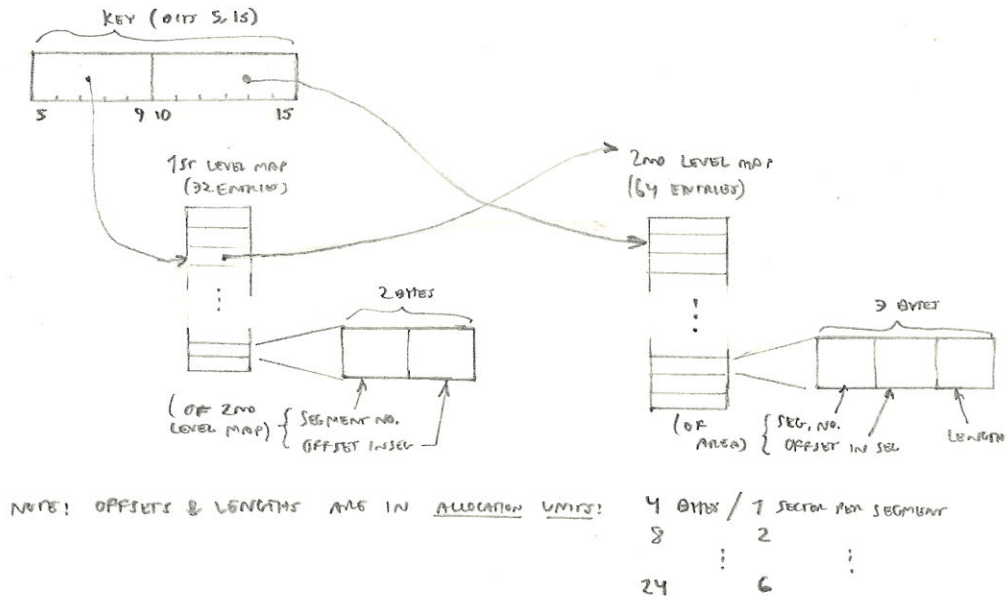 KEY (BITS 5, 15)
5 9 10 15
1ST LEVEL MAP
(32 ENTRIES)
2ND LEVEL MAP
(64 ENTRIES)
2 BYTES
3 BYTES
(OF 2ND
LEVEL MAP)
SEGMENT NO.
OFFSET IN SEG
(OF
AREA)
SEG. NO.
OFFSET IN SEG
LENGTH
NOTE! OFFSETS & LENGTHS ARE IN ALLOCATION UNITS: 4 BYTES / 1 SECTOR PER SEGMENT
8 2
⋮ ⋮
24 6